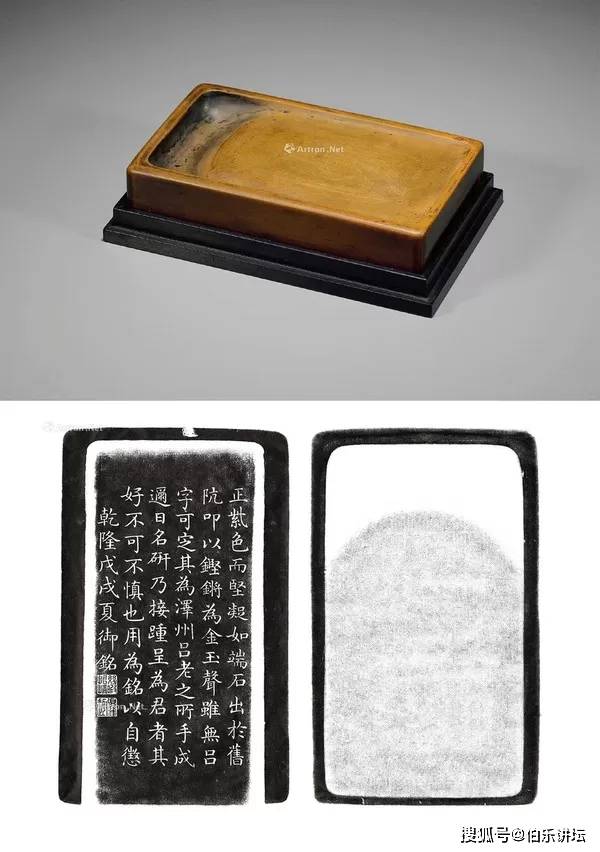 Artron.Net
Artron.Net
正紫色而堅凝如端石出於舊
阬叩以鏗鏘為金玉聲雖無呂
字可定其為澤州呂老之所手成
邇日名硏乃接踵呈為君者其
好不可不慎也用為銘以自懲
乾隆戊戌夏御銘
搜狐号@伯乐讲坛